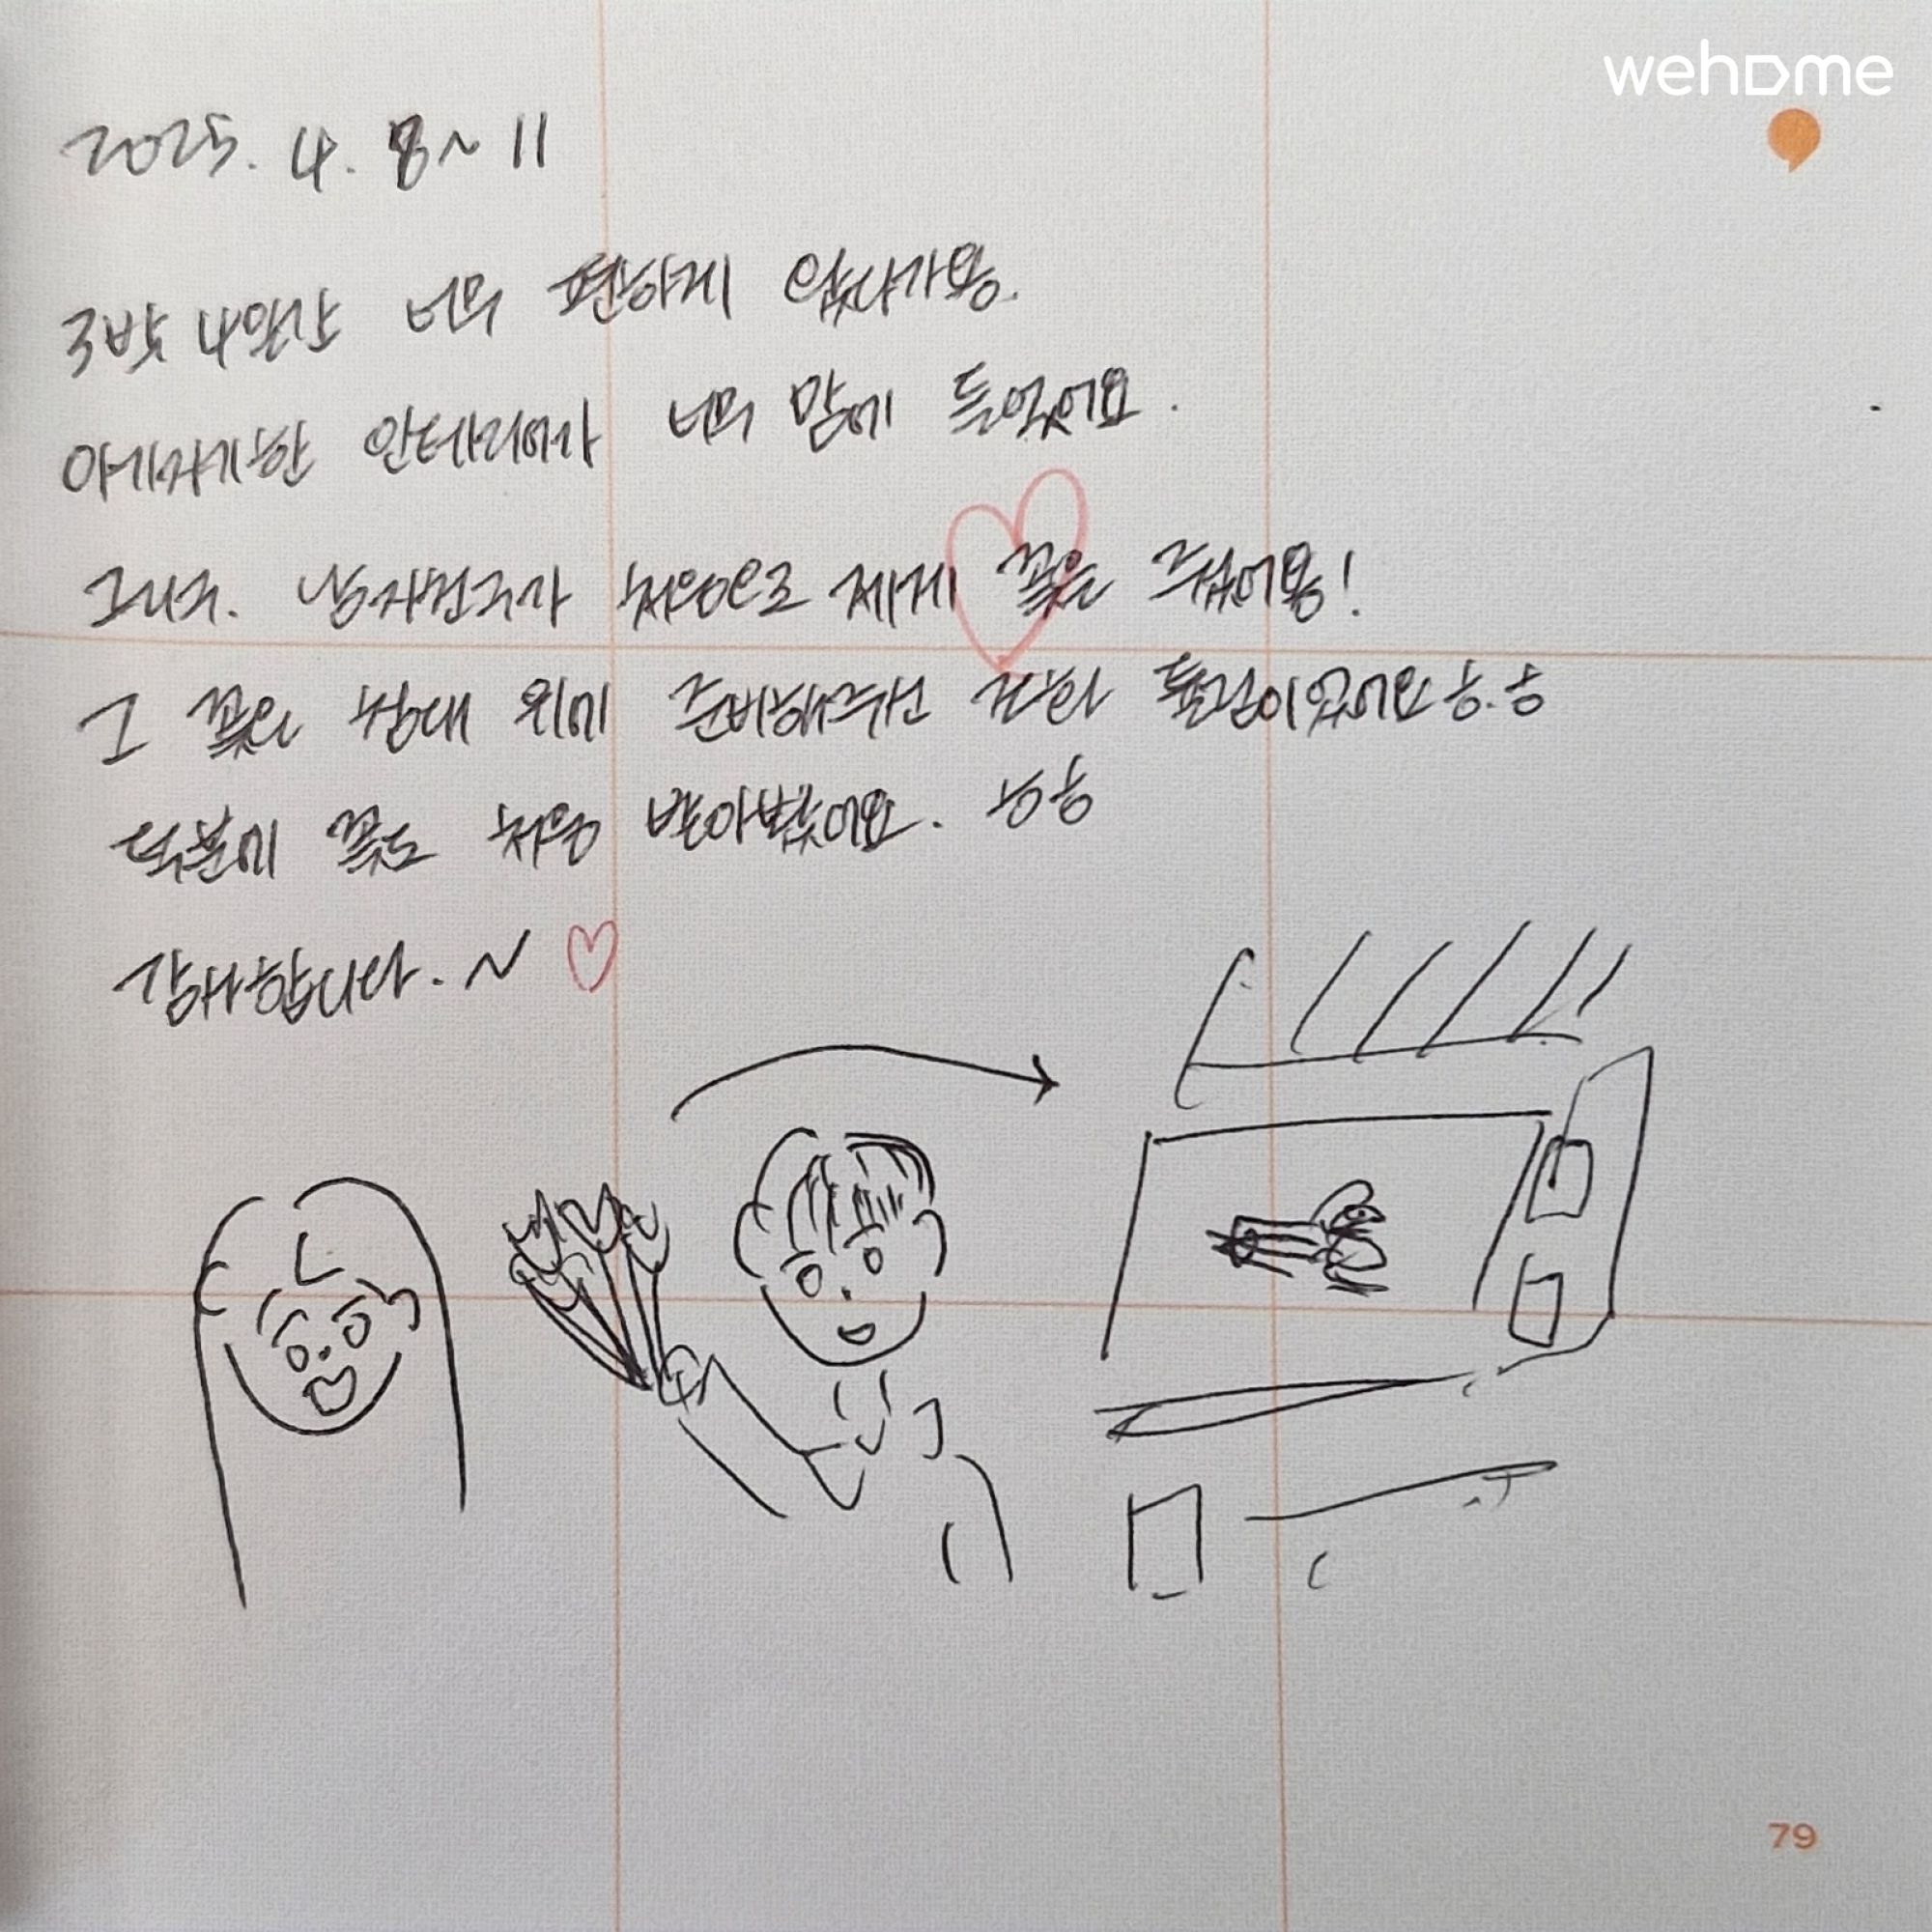 wehome
2025. 4. 8~11
3박 4일간 너무 편하게 있다가용.
아기자기한 인테리어가 너무 맘에 들었어요.
그리구. 남자친구가 처음으로 제게 꽃을 주었어용!
그 꽃은 침대 위에 준비해주신 튤립이었어요ㅎ.ㅎ
덕분에 꽃도 처음 받아봤어요. ㅎㅎ
감사합니다.~
79